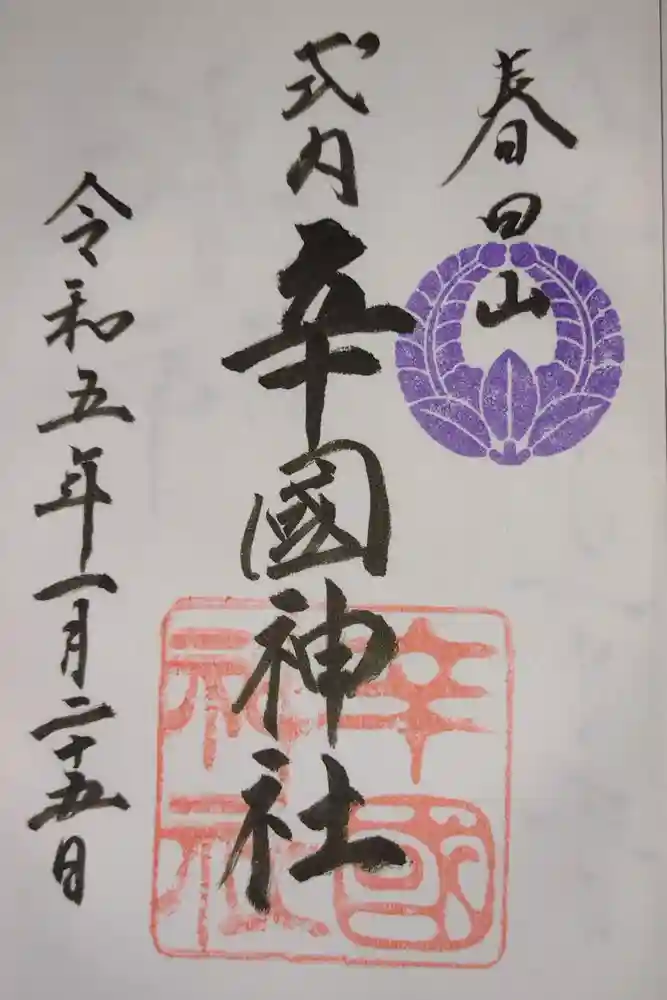 春日山
式内 辛國神社
令和五年一月二十五日
辛國
神社